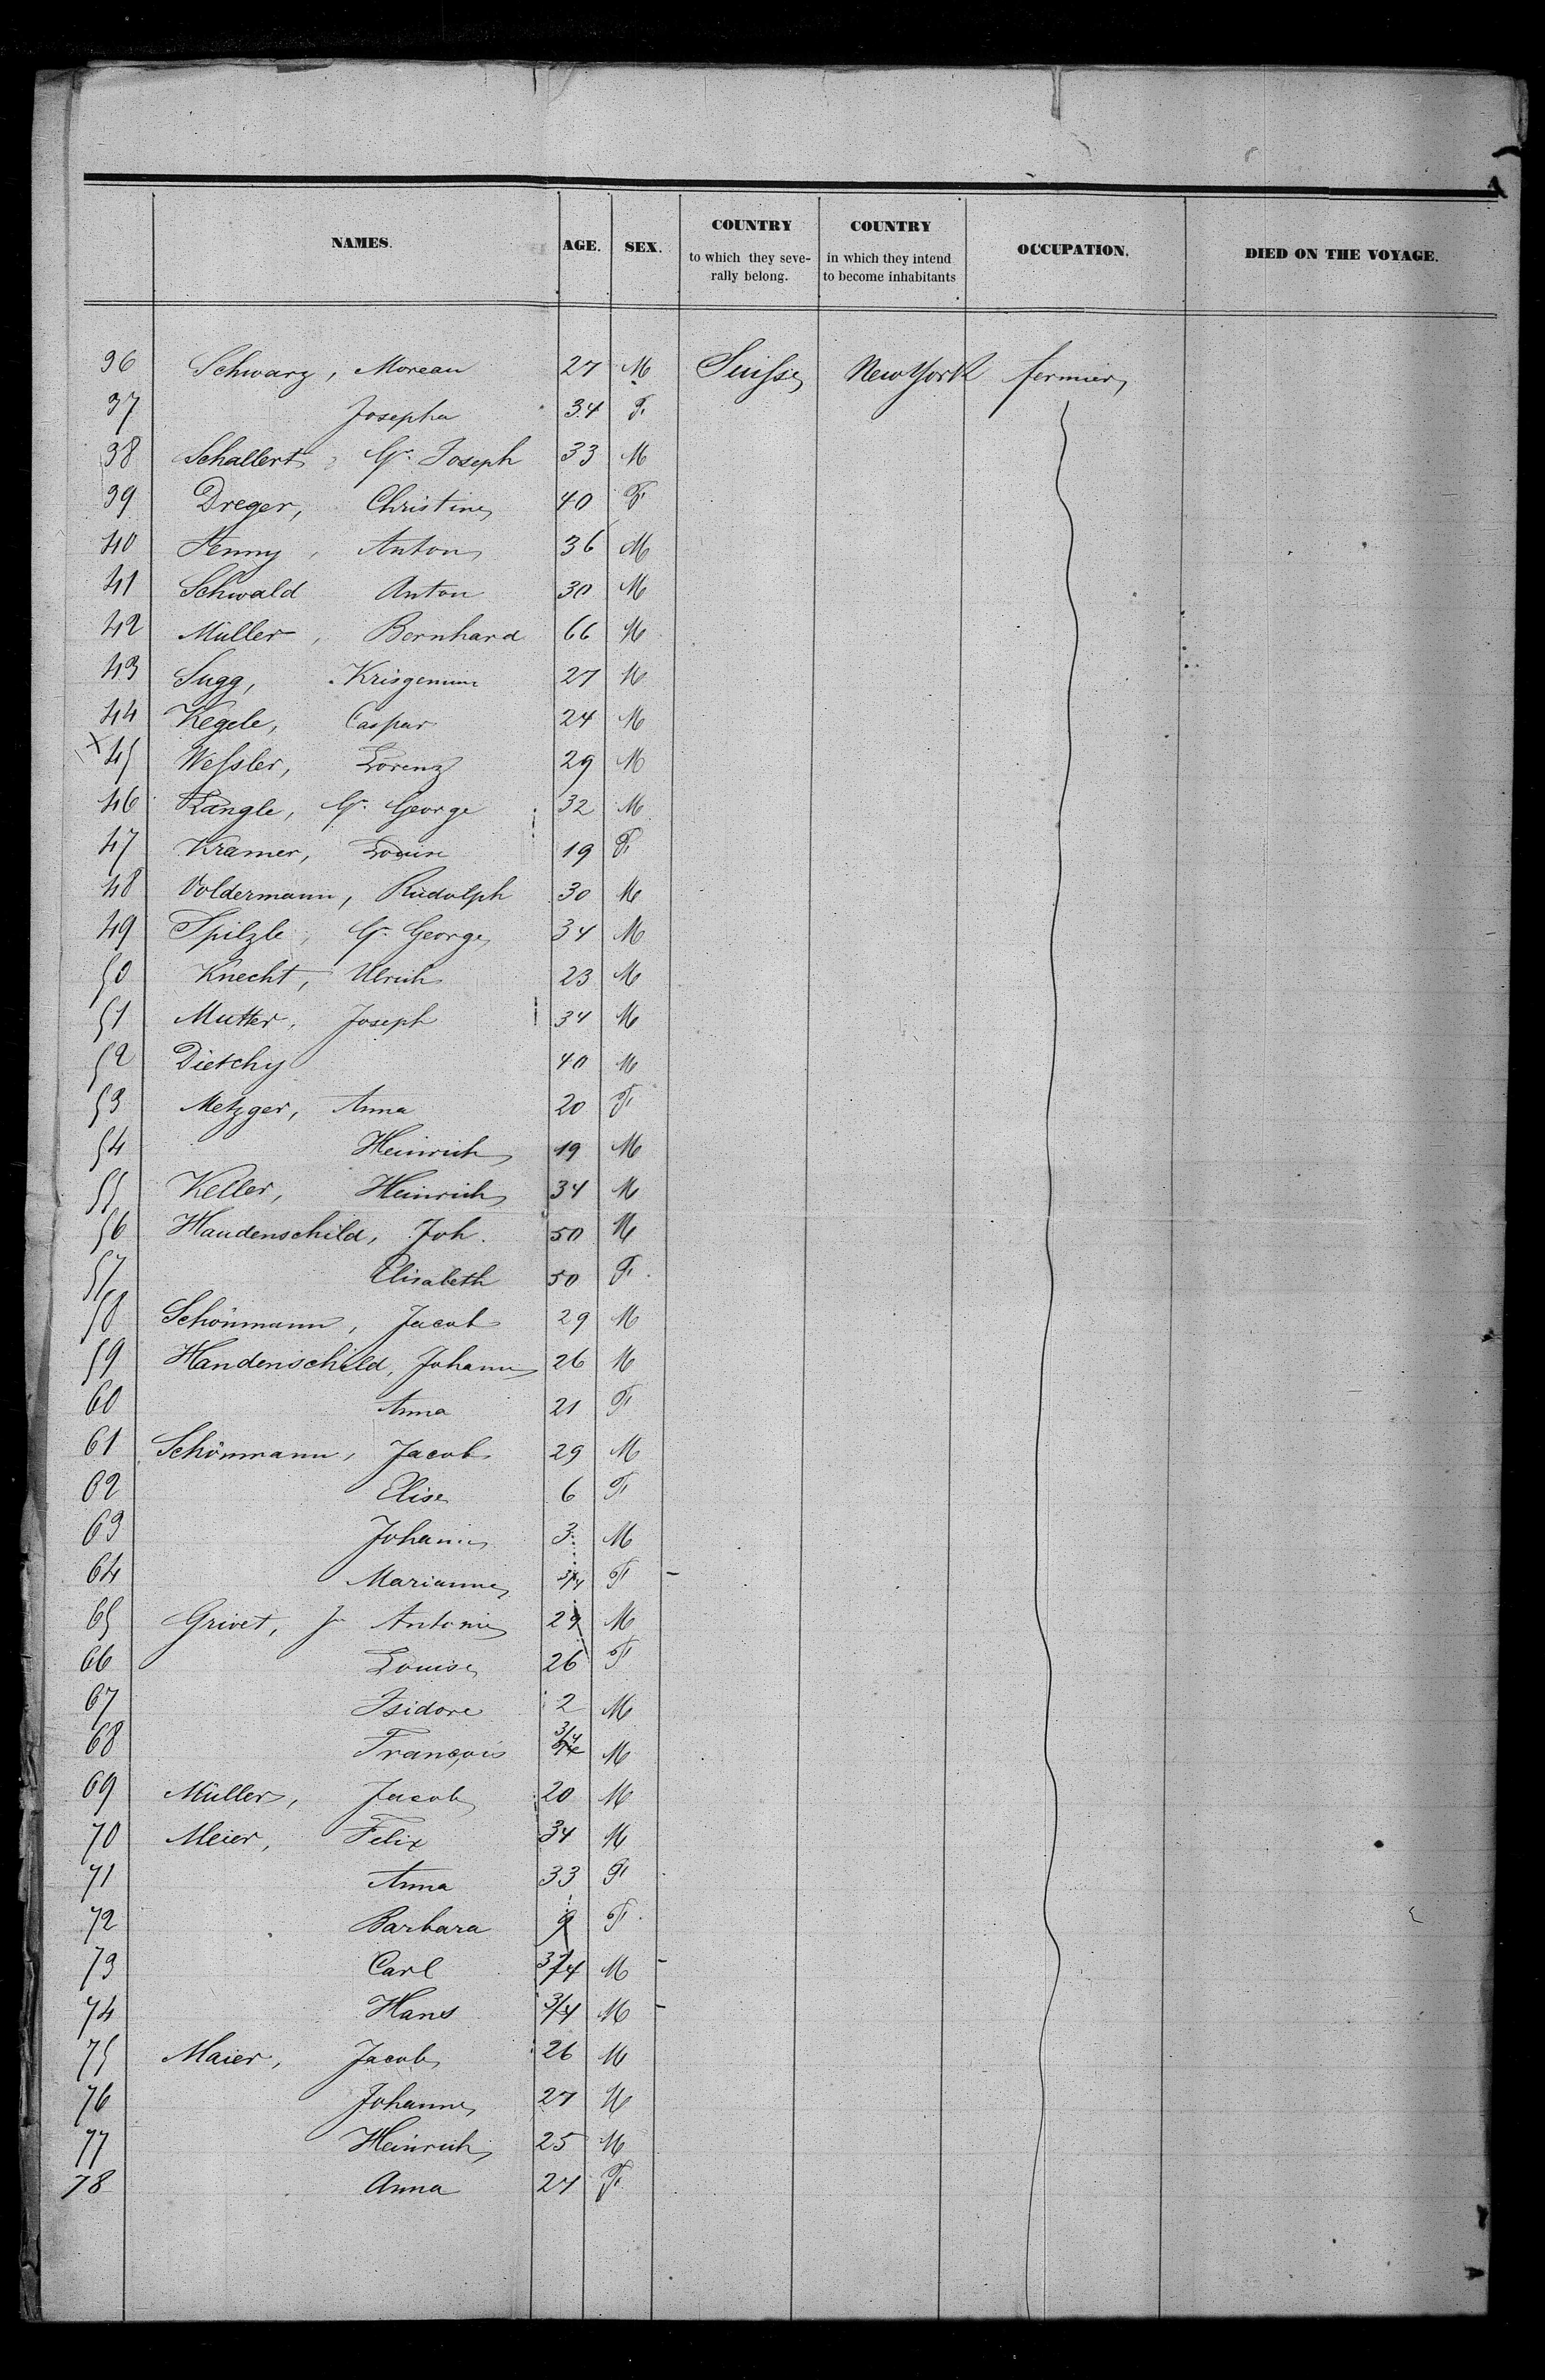 NAMES. AGE. SEX. COUNTRY to which they severally belong. COUNTRY in which they intend to become inhabitants OCCUPATION. DIED ON THE VOYAGE.
36 Schwarz, Moreau 27 M Suisse New York fermier
37 Josepha 34 F
38 Schallert, Joseph 33 M
39 Dreger, Christine 40 F
40 Jenny, Anton 36 M
41 Schwald Anton 30 M
42 Müller, Bernhard 66 M
43 Sugg, 27 M
44 Kegele, Caspar 24 M
x 45 Wessler, Lorenz 29 M
46 Längle, George 32 M
47 Kramer, Louise 19 F
48 Voldermann, Rudolph 30 M
49 Spilzle, George 34 M
50 Knecht, Ulrich 23 M
51 Mutter, Joseph 34 M
52 Dietchy 40 M
53 Metzger, Anna 20 F
54 Heinrich 19 M
55 Keller, Heinrich 34 M
56 Haudenschild, Joh. 50 M
57 Elisabeth 50 F
58 Schönmann, Jacob 29 M
59 Haudenschild, Johann 26 M
60 Anna 21 F
61 Schönmann, Jacob 29 M
62 Elise 6 F
63 Johann 3 M
64 Marianne 3/4 F
65 Grivet, J Antonie 29 M
66 Louise 26 F
67 Isidore 2 M
68 François 3/4 M
69 Müller, Jacob 20 M
70 Meier, Felix 34 M
71 Anna 33 F
72 Barbara 9 F
73 Carl 3/4 M
74 Hans 3/4 M
75 Maier, Jacob 26 M
76 Johann 27 M
77 Heinrich 25 M
78 Anna 27 F